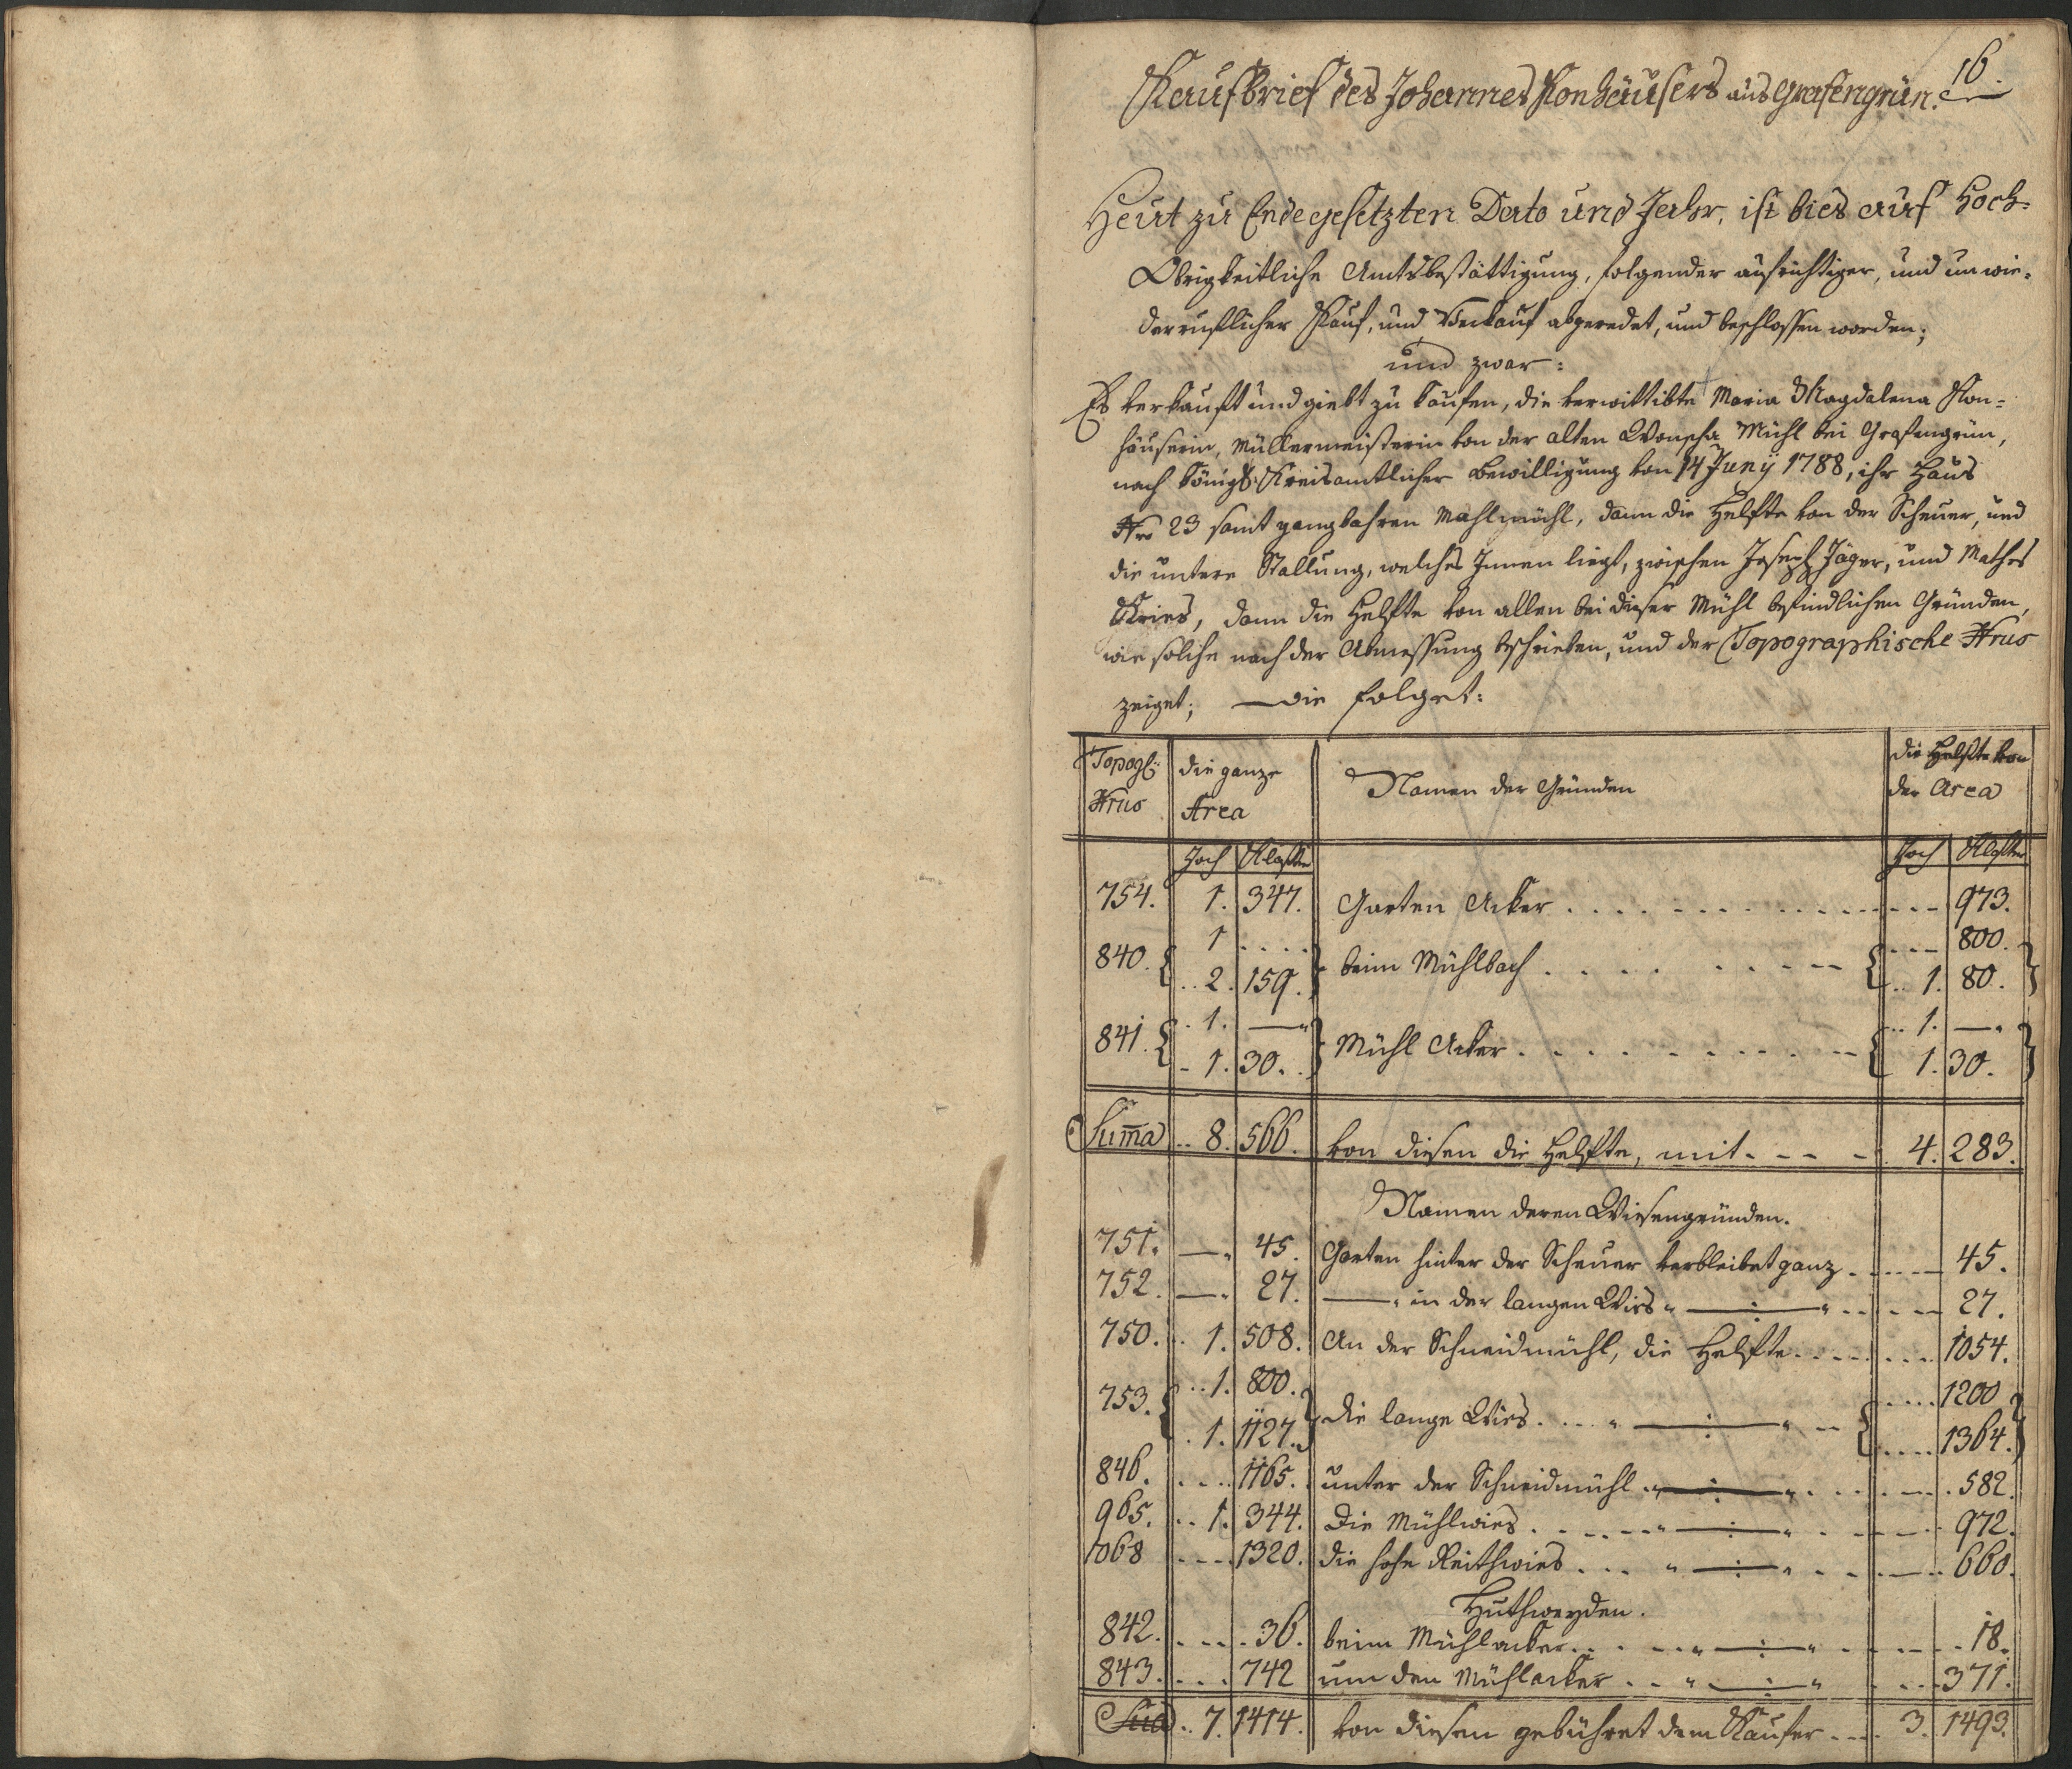 16.
Kaufbrief des Johannes Konhäusers aus Grafengrün.
Heut zu Endegesetzten Dato und Jahr, ist bies auf Hoch=
Obrigkeitliche Amtsbestättigung, folgender aufrichtiger, und unwie=
derruflicher Kauf, und Verkauf abgeredet, und beschlossen worden;
und zwar:
Es verkauft und giebt zu kaufen, die verwittibte Maria Magdalena Kon=
häuserin, Müllermeisterin von der alten Mühl bei Grafengrün,
nach königl: Kreisamtlicher Bewilligung von 14 Junÿ 1788, ihr Haus
Nro 23 samt gangbahren Mahlmühl, dann die Helfte von der Scheuer, und
die untere Stallung, welches Innen liegt, zwischen Joseph Jäger, und Mathes
dann die Helfte von allen bei dieser Mühl befindlichen Gründen,
wie solche nach der Abmessung beschrieben, und der Topographische Nrus
zeiget; — die folget:
Topogl: Nrus | die ganze Area | Namen der Gründen | die Helfte von der Area
Joch | Klafter | Joch | Klafter
754. 1. 347. Garten Acker . . . . 973.
840. { 1 . . . . } beim Mühlbach . . . . { . . . 800. }
{ 2. 159. } { 1. 80. }
841. { 1. — } Mühl Acker . . . . { 1. — }
{ 1. 30. } { 1. 30. }
Suma 8. 566. von diesen die Helfte, mit - - - 4. 283.
Namen deren Wiesengründen.
751. — 45. Garten hinter der Scheuer verbleibet ganz . . . 45.
752. — 27. — in der langen Wies " —:— " . . . 27.
750. 1. 508. An der Schneidmühl, die Helfte . . . . 1054.
753. { 1. 800. } die lange Wies . . . " —:— " { 1200 }
{ 1. 1127. } { 1364. }
846. . . . 1165. unter der Schneidmühl " —:— " . . . 582.
965. 1. 344. Die Mühlwies . . . " —:— " . . . 972.
1068 . . . 1320. die hohe Reithwies . . . " —:— " . . . 660.
Huthweyden.
842. . . . 36. beim Mühlacker . . . " —:— " . . . 18.
843. . . . 742 um den Mühlacker . . " —:— " . . . 371.
Sua 7. 1414. von diesen gebühret dem Kaufer . . . 3. 1493.